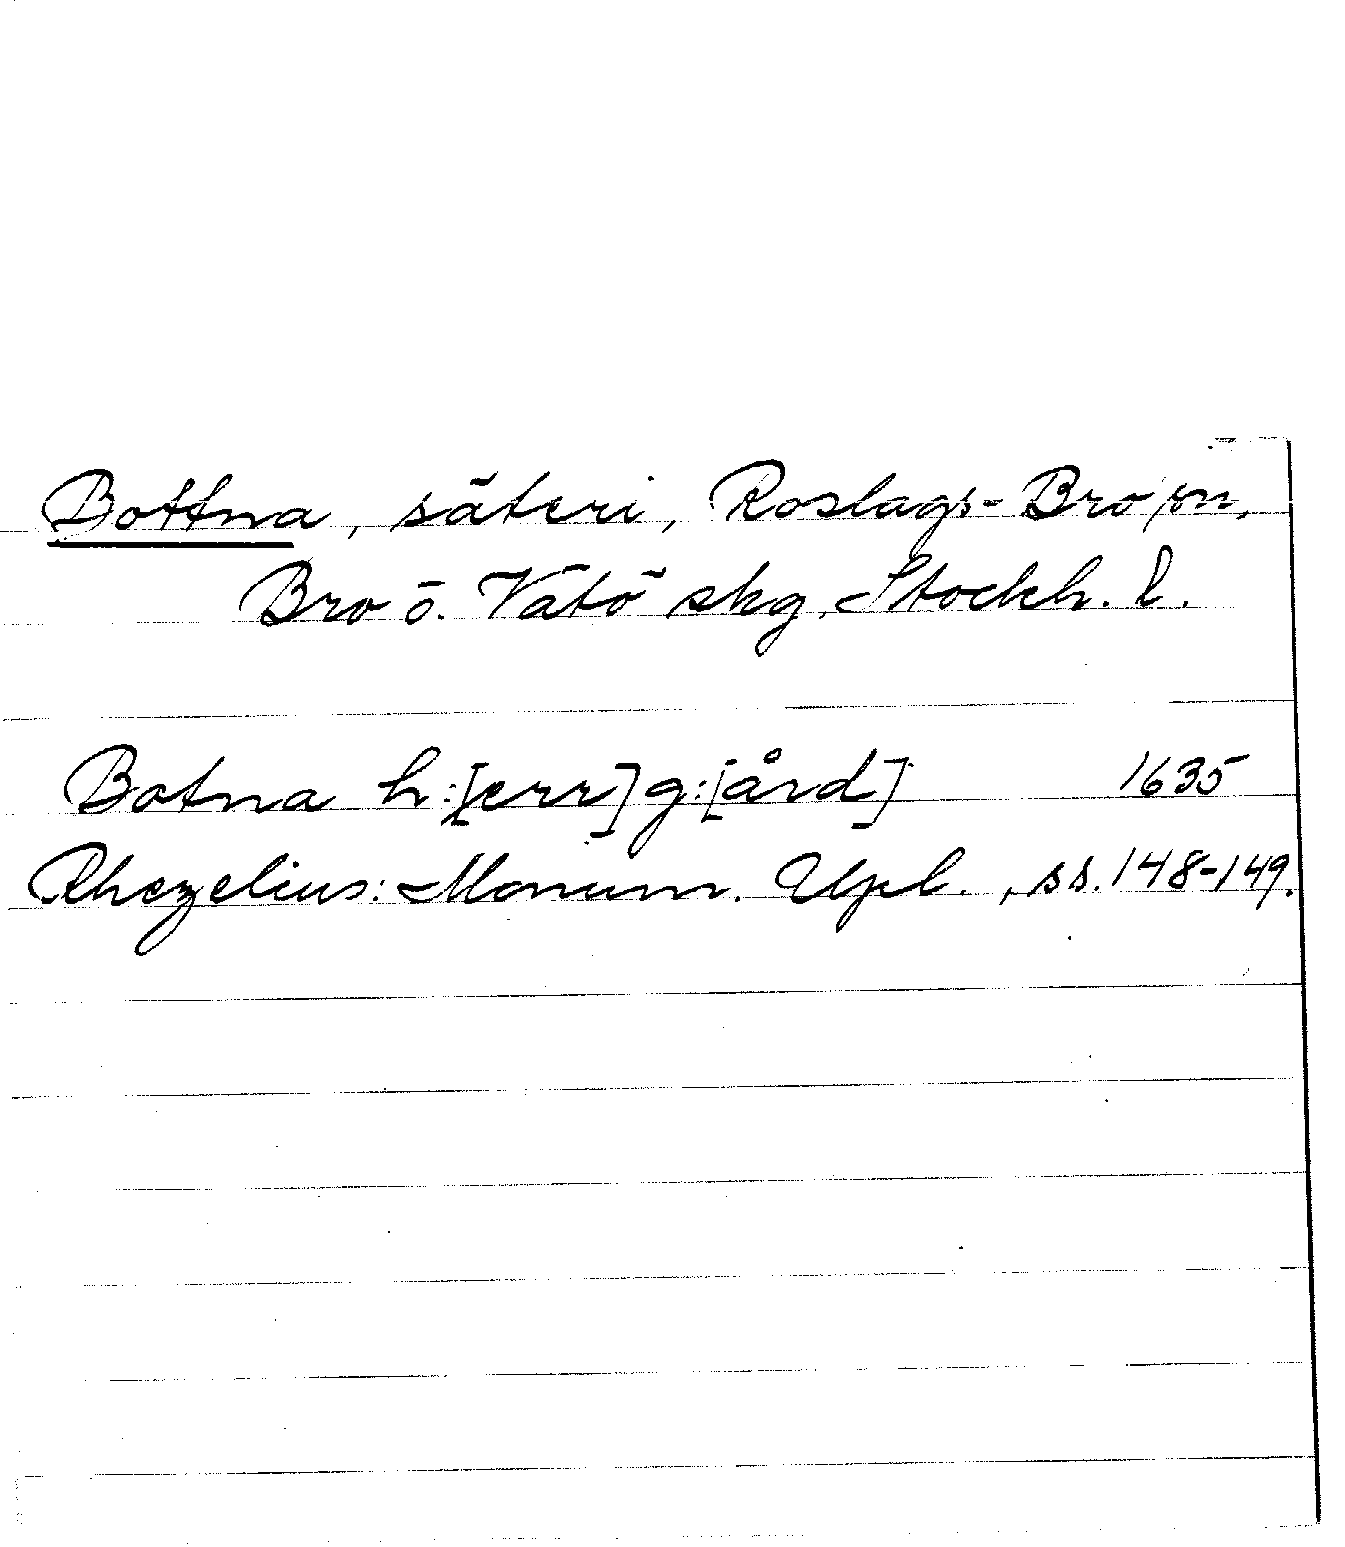 Bottna, säteri, Roslags-Bro sn,
Bro o. Vätö skg, Stockh. l.
Botna h:[err]g:[ård] 1635
Rhezelius: Monum. Upl., ss. 148-149.